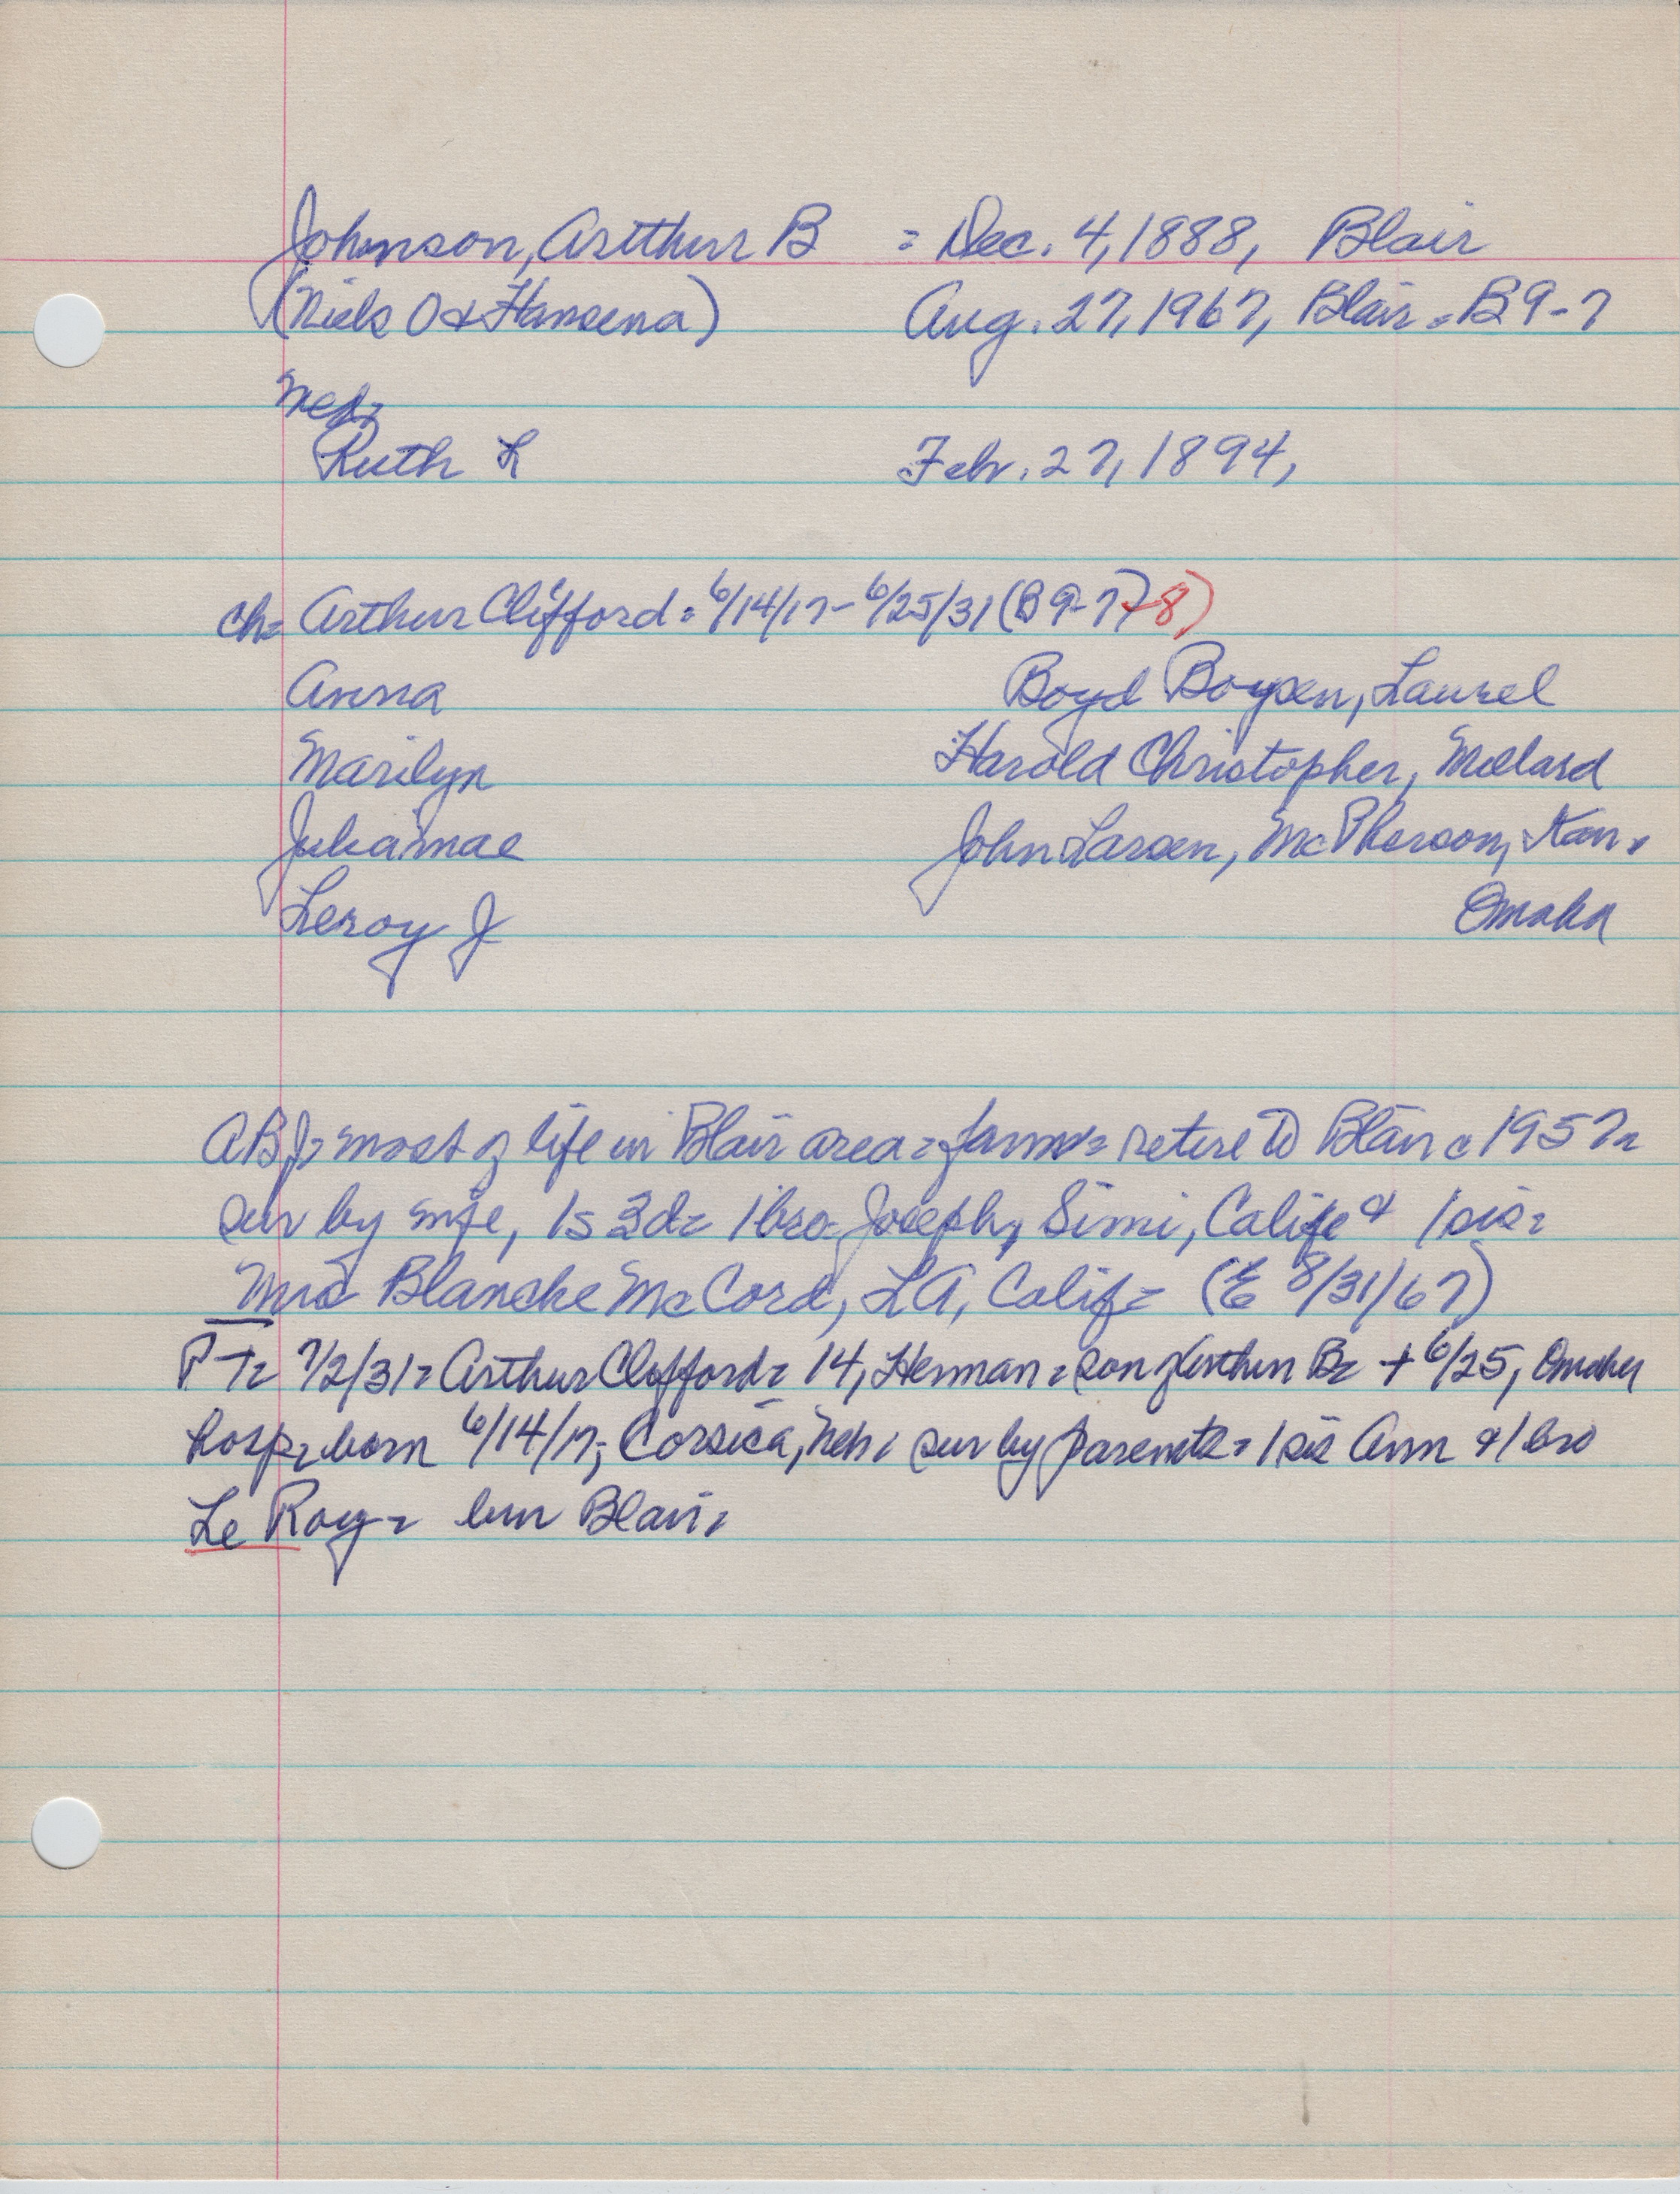 Johnson, Arthur B = Dec. 4, 1888, Blair
(Niels O & Hansena) Aug. 27, 1967, Blair = B9-7
Ruth L Feb. 27, 1894,
ch= Arthur Clifford = 6/14/17 - 6/25/31 (B9-7)-8)
Anna Boyd Boysen, Laurel
Marilyn Harold Christopher, Millard
Juliamae John Larsen, McPherson, Kan.
Leroy J Omaha
ABJ= most of life in Blair area = farmer = retire to Blair c 1957=
sur by wife, 1s 3d= 1 bro= Joseph, Simi, Calif & 1 sis=
Mrs Blanche McCord, LA, Calif= (E 8/31/67)
PT= 7/2/31= Arthur Clifford= 14, Herman = son of Arthur B= + 6/25, Omaha
hosp= born 6/14/17, Corsica, Neb, sur by parents = 1 sis Ann & 1 bro
Le Roy = bur Blair,